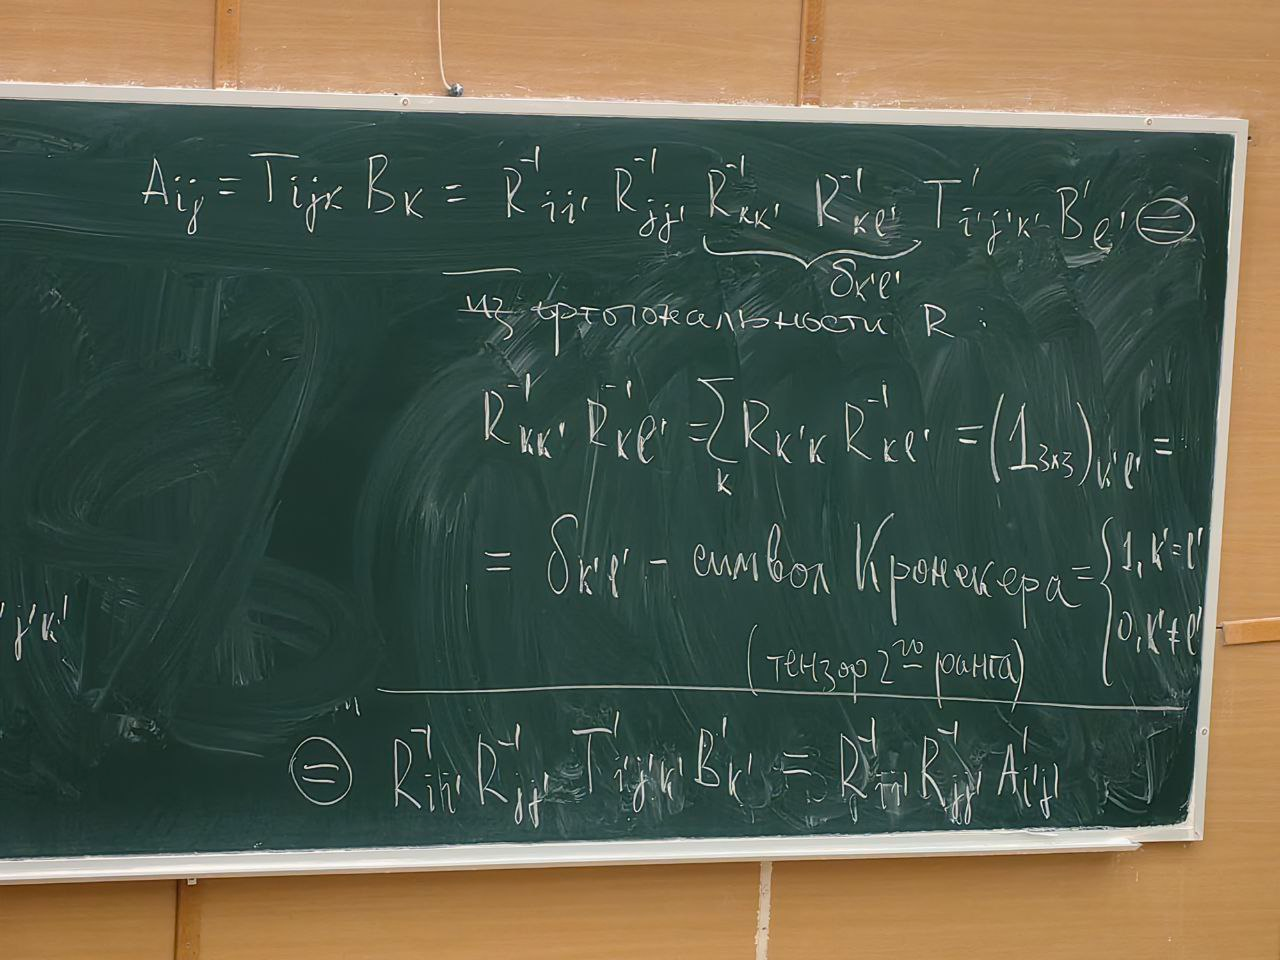 A_{ij} = T_{ijk} B_k = R^{-1}_{ii'} R^{-1}_{jj'} R^{-1}_{kk'} R^{-1}_{kl'} T'_{i'j'k'} B'_{l'} ⊜
δ_{k'l'}
из ортогональности R :
R^{-1}_{kk'} R^{-1}_{kl'} = ∑_k R_{k'k} R^{-1}_{kl'} = (1_{3×3})_{k'l'} =
= δ_{k'l'} - символ Кронекера = { 1, k'=l'
0, k'≠l'
'j'k'
(тензор 2го ранга)
⊜ R^{-1}_{ii'} R^{-1}_{jj'} T'_{i'j'k'} B'_{k'} = R^{-1}_{ii'} R^{-1}_{jj'} A'_{i'j'}